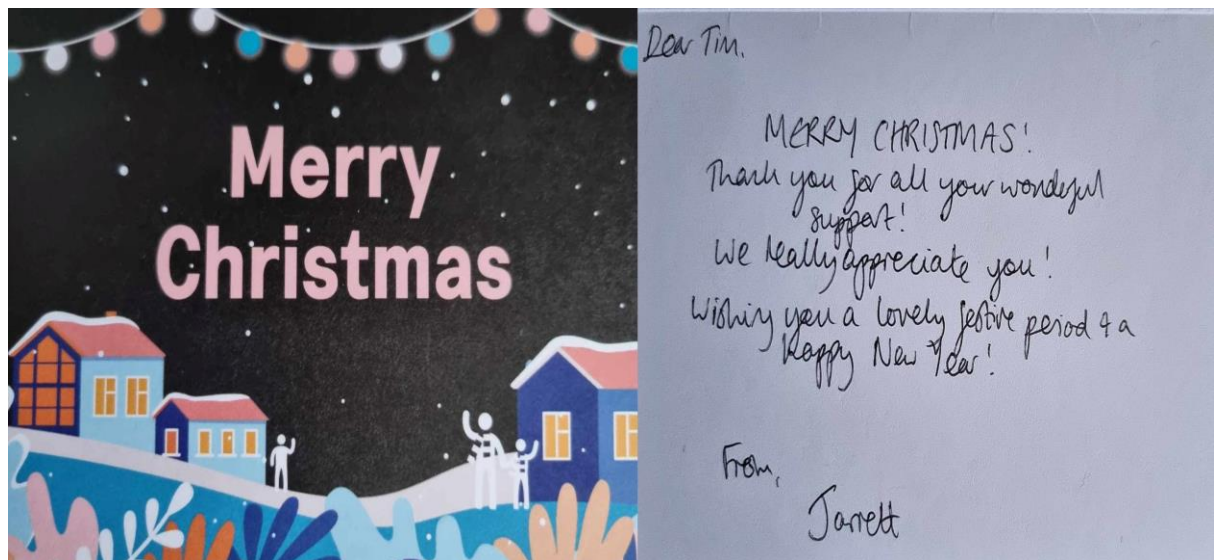 Merry
Christmas
Dear Tim.
MERRY CHRISTMAS!
Thank you for all your wonderful
support!
We really appreciate you!
Wishing you a lovely festive period & a
Happy New Year!
From,
Jarrett